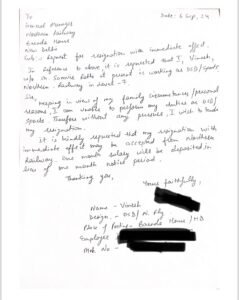 To
General Manager
Northern Railway
Baroda House
New Delhi
Date: 6 Sep, 24
Sub:- Request for resignation with immediate effect.
In reference to above, it is requested that I, Vinesh,
w/o Sh. Somvir Rathi at present is working as OSD/Sports
Northern Railway in level-7.
Sir,
Keeping in view of my family circumstances/personal
reasons, I am unable to perform my duties as OSD/
Sports Therefore without any pressures, I wish to tender
my resignation.
It is kindly requested that my resignation with
immediate effect may be accepted from Northern
Railway. One month salary will be deposited in
lieu of one month notice period.
Thanking you,
Yours faithfully,
Name - Vinesh
Design. - OSD/N. Rly
Place of Posting - Baroda House / HQ
Employee
Mob. No -